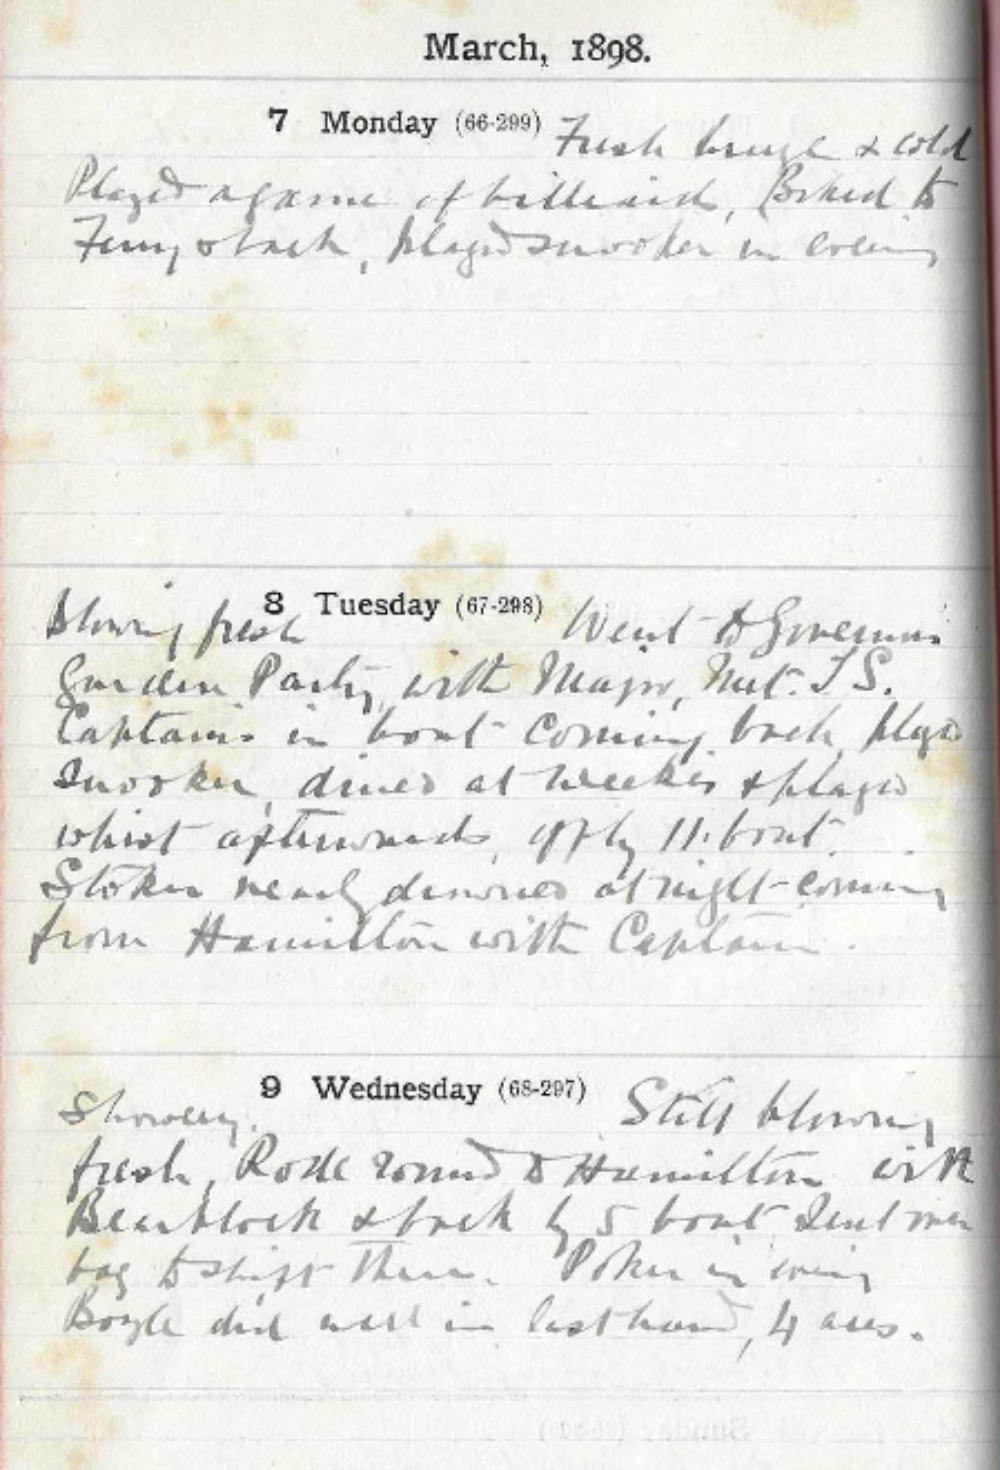 March, 1898.
7 Monday (66-299) Fresh breeze & cold
Played a game of billiards, Biked to
Ferry & back, played snooker in evening
8 Tuesday (67-298)
Blowing fresh Went to Governors
Garden Party with Major, T.S.
Captains in boat coming back, played
snooker, dined at & played
whist afterwards, off by 11. boat.
Stoker nearly drowned at night coming
from Hamilton with Captain.
9 Wednesday (68-297)
Showery. Still blowing
fresh, Rode round to Hamilton with
Bearblock & back by 5 boat Sent over
bag to shift there. Poker in evening
Boyle did well in last hand, 4 aces.